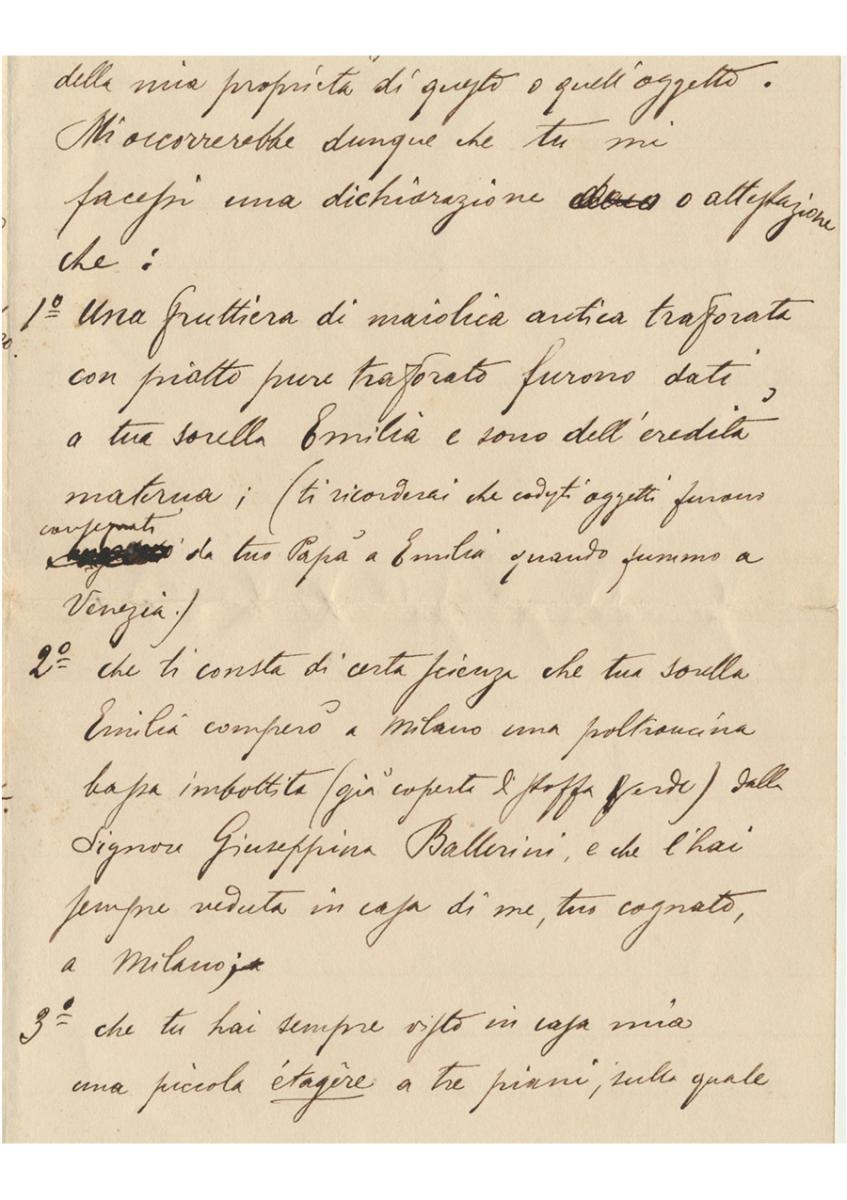 della mia proprietà di questo o quell'oggetto.
Mi occorrerebbe dunque che tu mi
facessi una dichiarazione o attestazione
che :
1º Una fruttiera di maiolica antica traforata
con piatto pure traforato furono dati,
a tua sorella Emilia e sono dell'eredità
materna ; (ti ricorderai che codesti oggetti furono
consegnati
da tuo Papà a Emilia quando fummo a
Venezia.)
2º che ti consta di certa scienza che tua sorella
Emilia comperò a Milano una poltroncina
bassa imbottita (già coperta di stoffa verde) dalla
Signora Giuseppina Ballerini, e che l'hai
sempre veduta in casa di me, tuo cognato,
a Milano;
3º che tu hai sempre visto in casa mia
una piccola étagère a tre piani, sulla quale